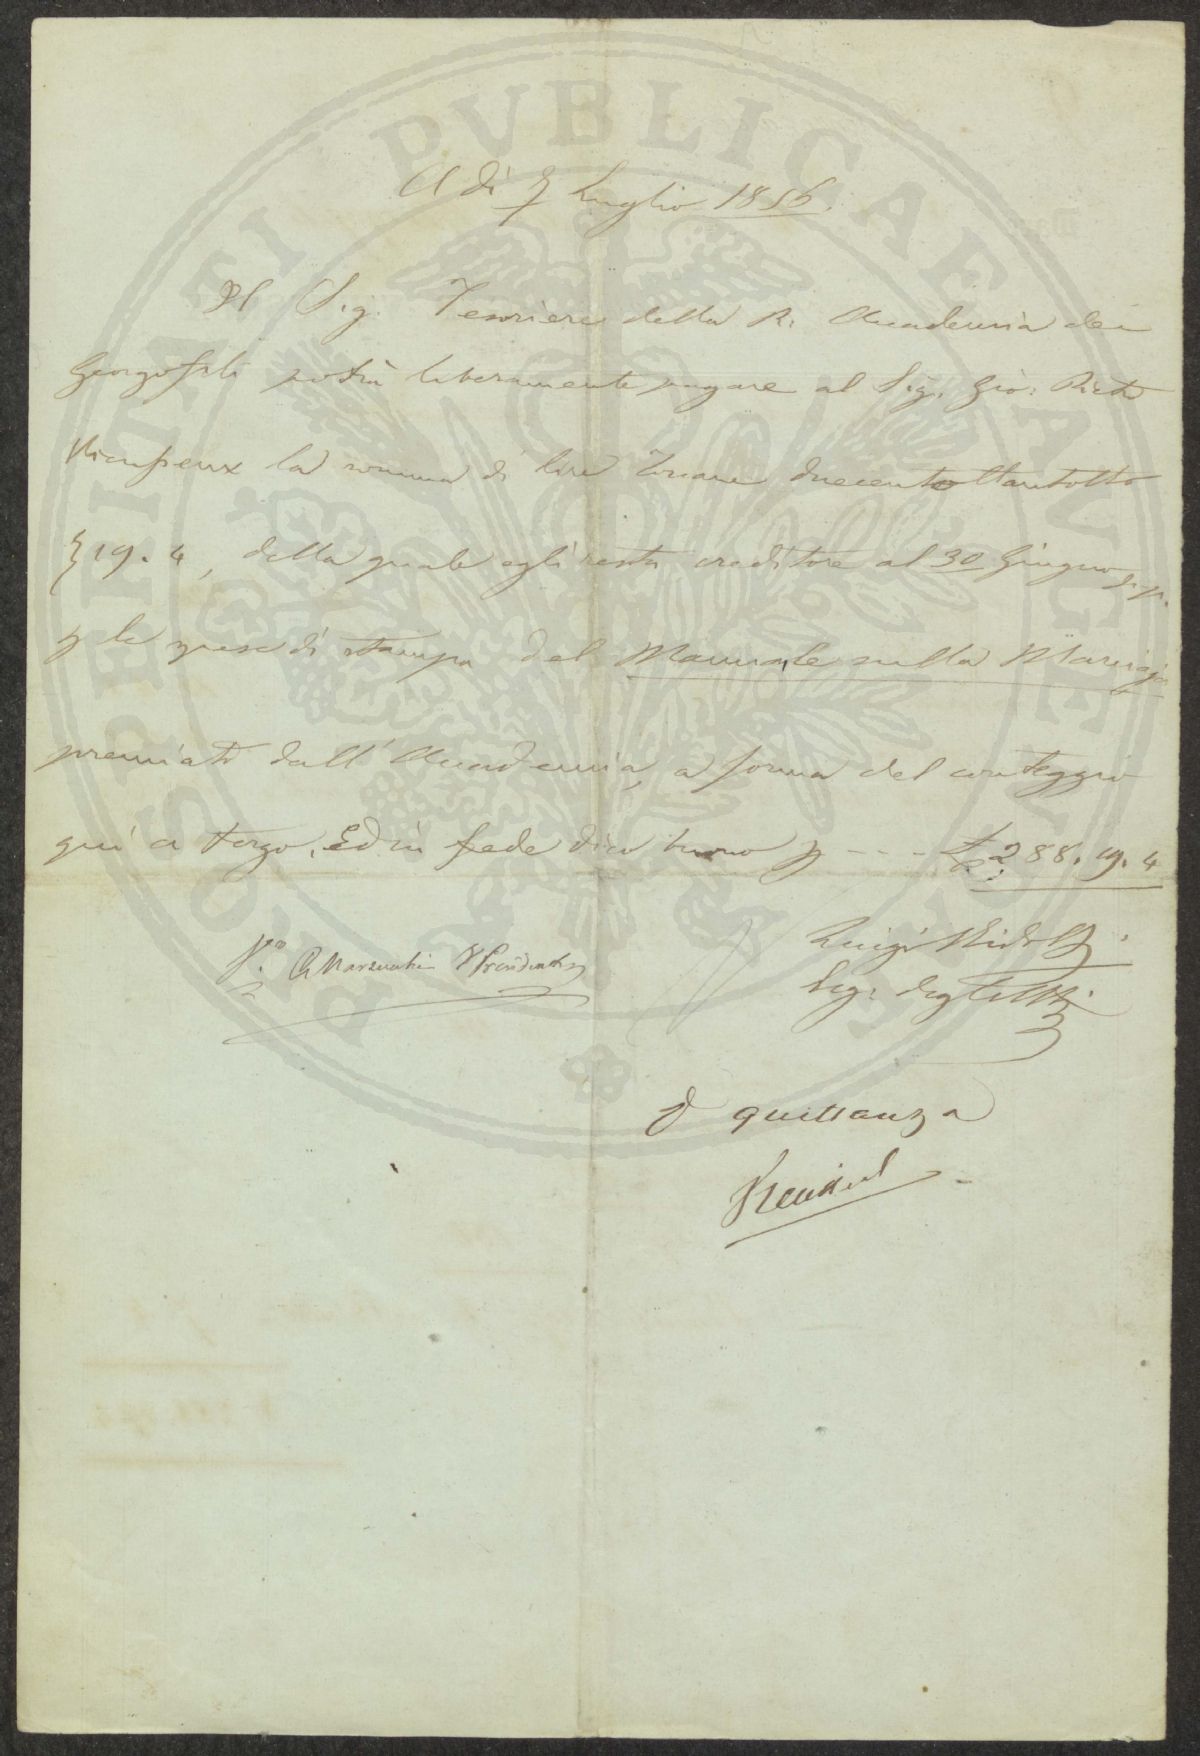 PROSPERITATI PVBLICAE AVGENDAE
A dì 7 Luglio 1856.
Il Sig. Tesoriere della R. Accademia dei
Georgofili potrà liberamente pagare al Sig. Gio: Pietro
Vieusseux la somma di lire Toscane duecentottantotto
£ 19. 4, della quale egli resta creditore al 30 Giugno p. p.
p le spese di stampa del Manuale sulla Marruca
premiato dall' Accademia, a forma del conteggio
qui a tergo. Ed in fede dico buono p - - - £ 288. 19. 4
Luigi Ridolfi
Seg. degli Atti
P. Quittanza
Vieusseux